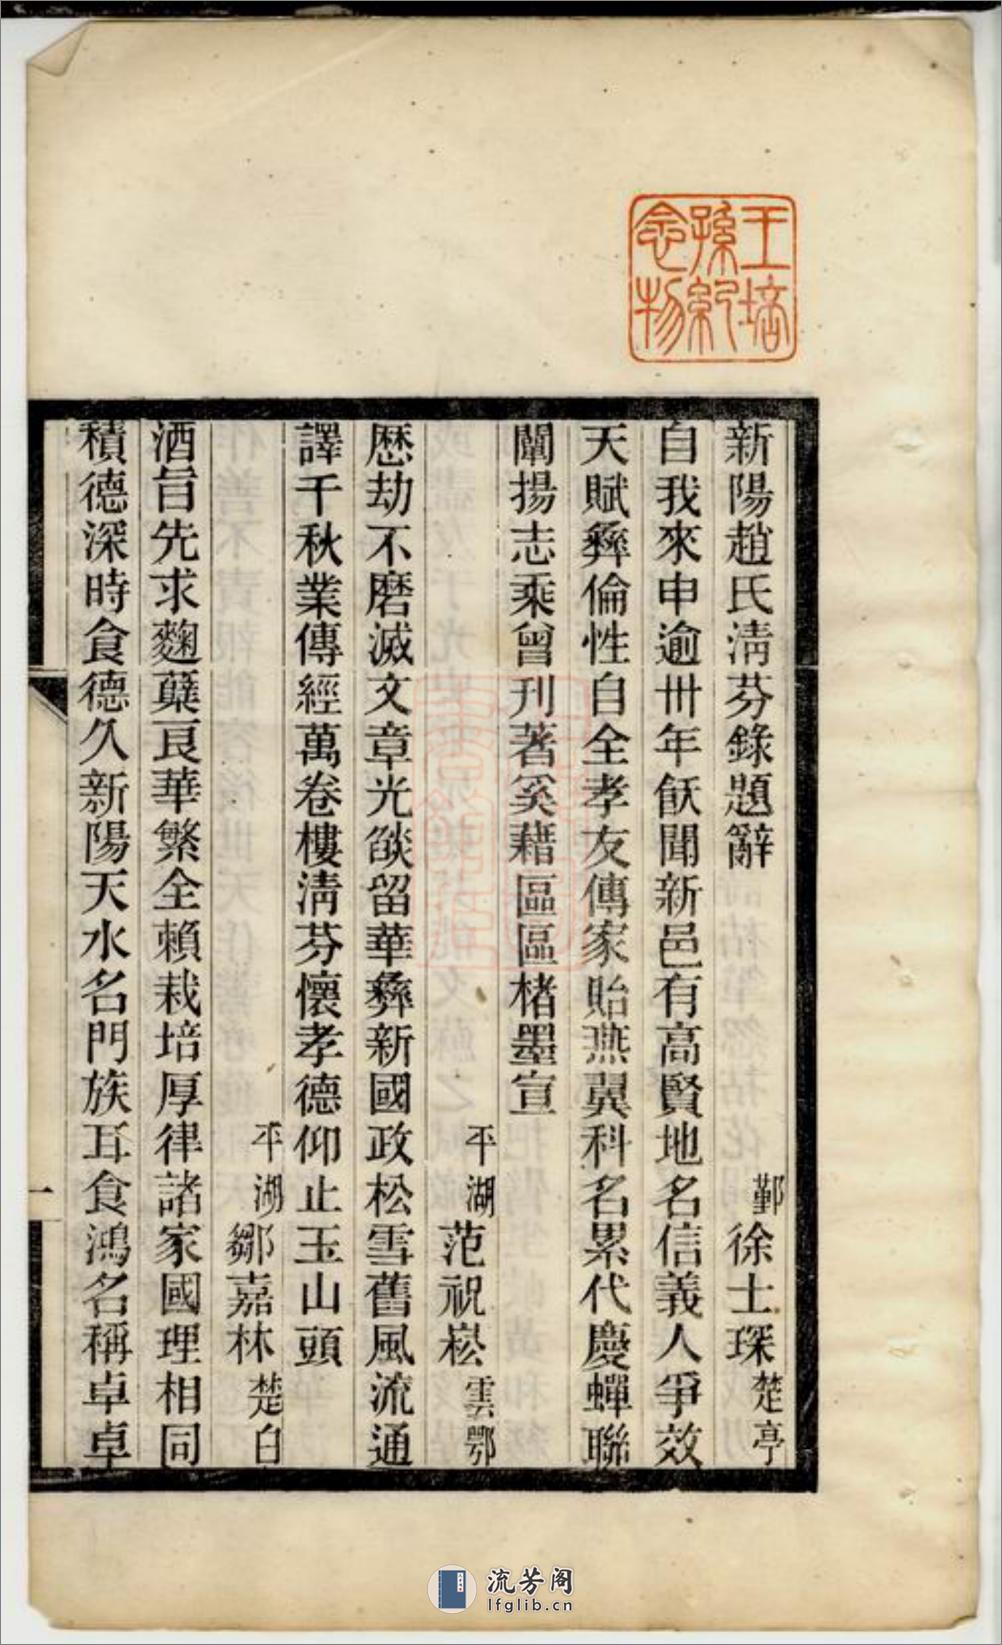 王培
孫紀
念物
新陽趙氏淸芬錄題辭
鄞徐士琛楚亭
自我來申逾卅年飫聞新邑有高賢地名信義人爭效
天賦彝倫性自全孝友傳家貽燕翼科名累代慶蟬聯
闡揚志乘曾刊著奚藉區區楮墨宣
平湖范祝崧雲鄂
歷劫不磨滅文章光燄留華彝新國政松雪舊風流通
譯千秋業傳經萬卷樓淸芬懷孝德仰止玉山頭
平湖鄒嘉林楚白
酒旨先求麴糵良華繁全賴栽培厚律諸家國理相同
積德深時食德久新陽天水名門族耳食鴻名稱卓卓
一
流芳阁
lfglib.cn